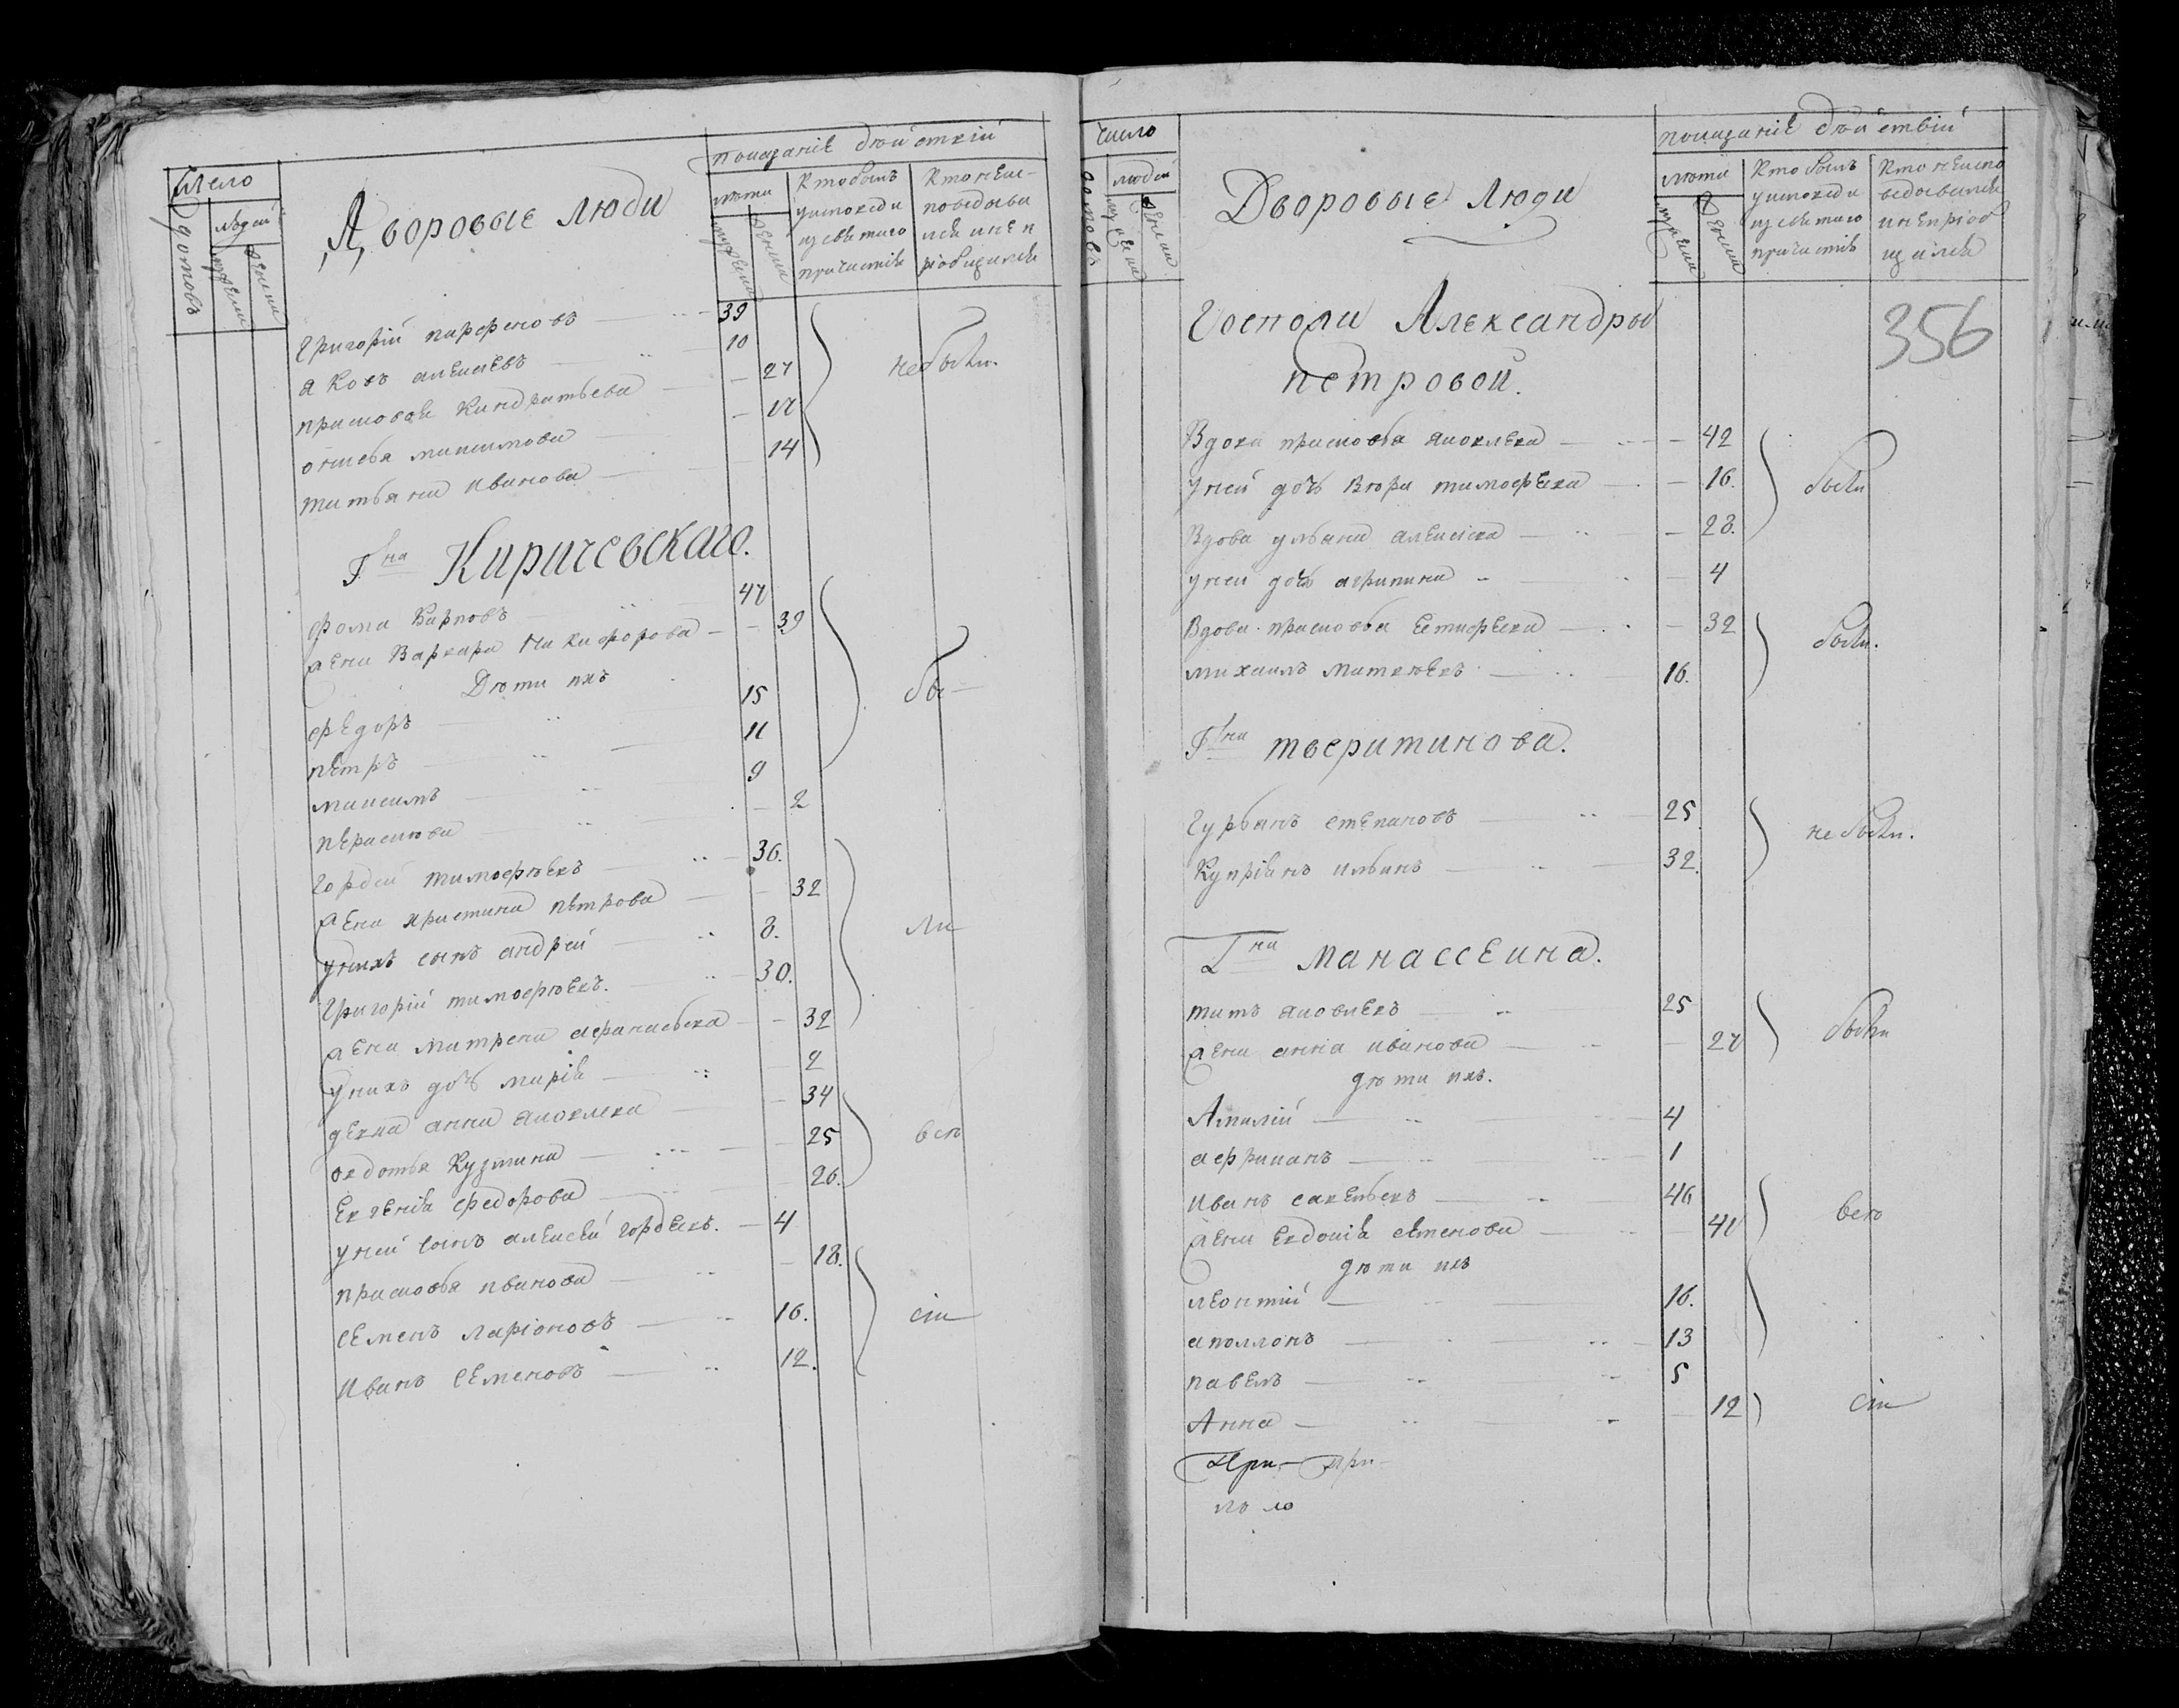 Число
домовъ
людей
мужеска
женска
Дворовые люди
показаніе действій
лѣта
мужеска
женска
Кто былъ
у исповеди
и у святаго
причастія
Кто не ис-
поведова
лся и не п
ріобщился
Григорій парфеновъ 39
Яковъ алексѣевъ 10
прасковья Кандратьева 27
не были.
максимова 17
татьяна иванова 14
Гна Киричевскаго.
фома Карповъ 47
жена Варвара Никифорова 39
Дѣти ихъ
бы
федоръ 15
петръ 11
максимъ 9
параскова 2
гордей тимофѣевъ 36.
жена христина петрова 32
ли
у нихъ сынъ андрей 8.
Григорій тимофѣевъ. 30.
жена матрена афанасьева 32
у нихъ дочь марія 2
девка анна яковлева 34
овдотья Кузмина 25
всѣ
Евгенія федорова 26.
у ней сынъ алексей гордеевъ. 4
прасковья иванова 18.
семенъ ларіоновъ 16.
сіи
иванъ семеновъ 12.
число
домовъ
людей
мужеска
женска
Дворовые люди
показаніе действій
лѣта
мужеска
женска
Кто былъ
у исповеди
и у святаго
причастіе
Кто не испо
ведовался
и не пріоб
щился
356
Госпожи Александры
петровой.
Вдова прасковья яковлева 42
у ней дочь вѣра тимофеева 16.
были
Вдова ульяна алексѣева 28.
у ней дочь агрипина 4
Вдова прасковья Евтифеева 32
были.
михаилъ матвѣевъ 16.
Гна тверитинова.
Гурьянъ степановъ 25.
не были.
Купріянъ ильинъ 32.
Гна манассеина.
титъ яковлевъ 25
были
жена анна иванова 27
дѣти ихъ.
4
африканъ 1
иванъ савельевъ 46
всѣ
жена Евдокія семенова 41
дѣти ихъ
леонтій 16.
аполлонъ 13
павелъ 5
Анна 12
сіи
При при